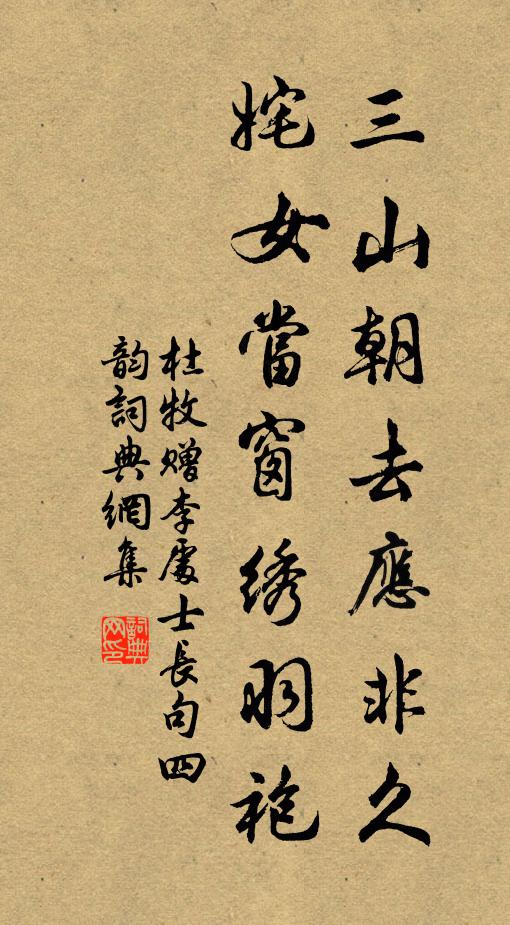 三山朝去應非久
姹女當窗綉羽袍
杜牧赠李處士長句四
韵詞典網集
詞典
网印